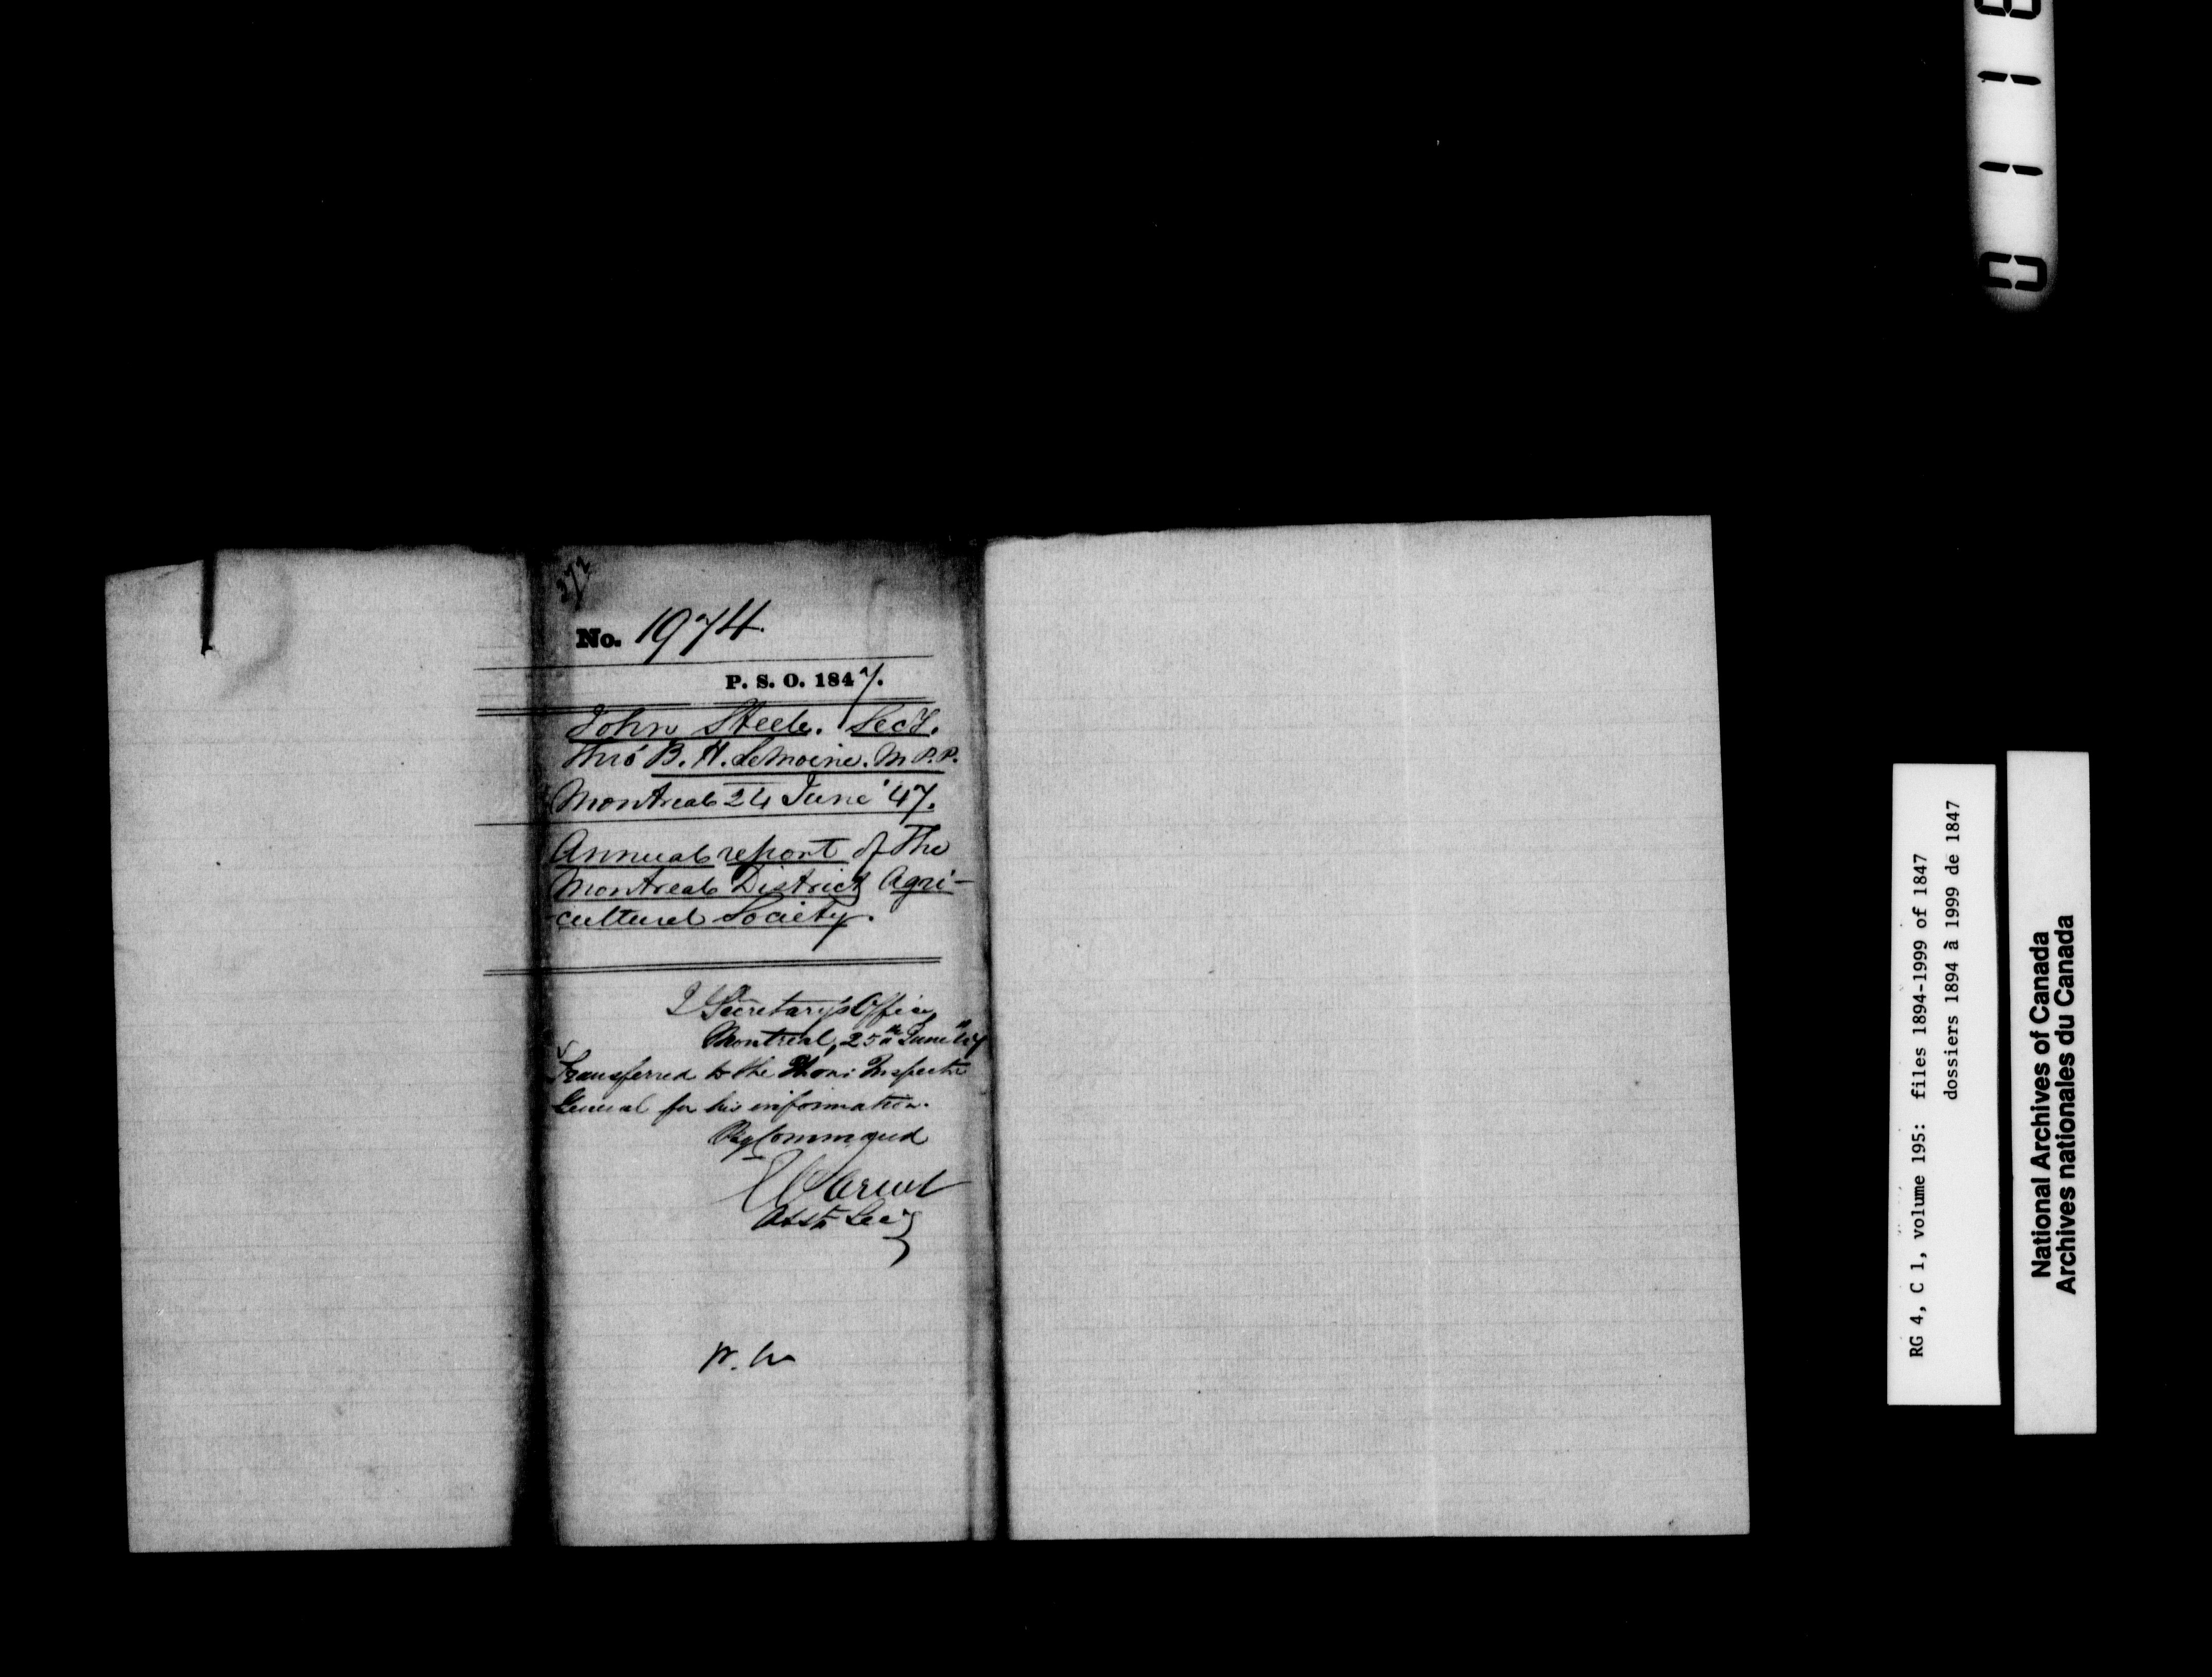 272
No. 1974.
P. S. O. 1847.
John Steele. Secy.
Thro' B. H. LeMoine. M.P.P.
Montreal 24 June '47.
Annual report of the
Montreal District Agri-
cultural Society.
Secretary's Office
Montreal, 25th June 47
Transferred to the Hon: Inspector
General for his information.
By Command
E Parent
Asst. Secy
RG 4, C 1, volume 195: files 1894-1999 of 1847
dossiers 1894 à 1999 de 1847
National Archives of Canada
Archives nationales du Canada